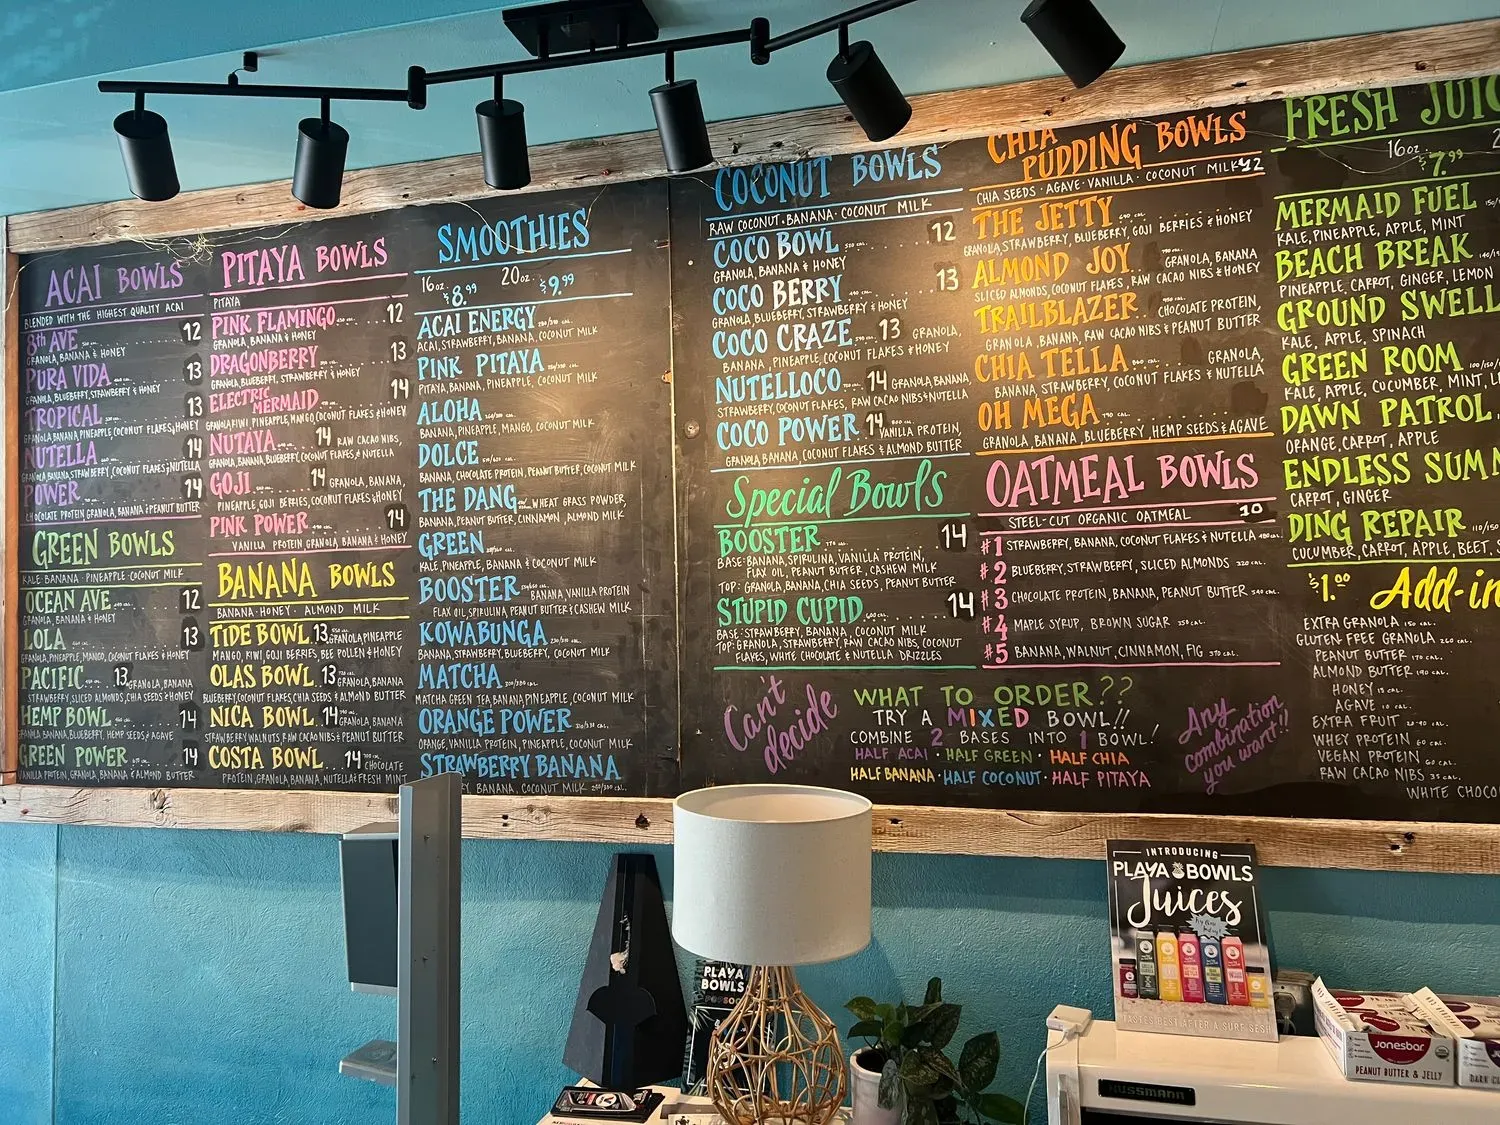 ACAI BOWLS
BLENDED WITH THE HIGHEST QUALITY ACAI
8th AVE 12
GRANOLA, BANANA & HONEY
PURA VIDA 13
GRANOLA, BLUEBERRY, STRAWBERRY & HONEY
TROPICAL 13
GRANOLA, BANANA, PINEAPPLE, COCONUT FLAKES & HONEY
NUTELLA 14
GRANOLA, BANANA, STRAWBERRY, COCONUT FLAKES & NUTELLA
POWER 14
CHOCOLATE PROTEIN, GRANOLA, BANANA & PEANUT BUTTER
GREEN BOWLS
KALE · BANANA · PINEAPPLE · COCONUT MILK
OCEAN AVE 12
GRANOLA, BANANA & HONEY
LOLA 13
GRANOLA, PINEAPPLE, MANGO, COCONUT FLAKES & HONEY
PACIFIC 13 GRANOLA, BANANA,
STRAWBERRY, SLICED ALMONDS, CHIA SEEDS & HONEY
HEMP BOWL 14
GRANOLA, BANANA, BLUEBERRY, HEMP SEEDS & AGAVE
GREEN POWER 14
VANILLA PROTEIN, GRANOLA, BANANA & ALMOND BUTTER
PITAYA BOWLS
PITAYA
PINK FLAMINGO 12
GRANOLA, BANANA & HONEY
DRAGONBERRY 13
GRANOLA, BLUEBERRY, STRAWBERRY & HONEY
ELECTRIC MERMAID 14
GRANOLA, KIWI, PINEAPPLE, MANGO, COCONUT FLAKES & HONEY
NUTAYA 14 RAW CACAO NIBS,
GRANOLA, BANANA, BLUEBERRY, COCONUT FLAKES & NUTELLA
GOJI 14 GRANOLA, BANANA,
PINEAPPLE, GOJI BERRIES, COCONUT FLAKES & HONEY
PINK POWER 14
VANILLA PROTEIN, GRANOLA, BANANA & HONEY
BANANA BOWLS
BANANA · HONEY · ALMOND MILK
TIDE BOWL 13 GRANOLA, PINEAPPLE
MANGO, KIWI, GOJI BERRIES, BEE POLLEN & HONEY
OLAS BOWL 13 GRANOLA, BANANA
BLUEBERRY, COCONUT FLAKES, CHIA SEEDS & ALMOND BUTTER
NICA BOWL 14 GRANOLA, BANANA
STRAWBERRY, WALNUTS, RAW CACAO NIBS & PEANUT BUTTER
COSTA BOWL 14 CHOCOLATE
PROTEIN, GRANOLA, BANANA, NUTELLA & FRESH MINT
SMOOTHIES
16oz. $8.99 20oz. $9.99
ACAI ENERGY
ACAI, STRAWBERRY, BANANA, COCONUT MILK
PINK PITAYA
PITAYA, BANANA, PINEAPPLE, COCONUT MILK
ALOHA
BANANA, PINEAPPLE, MANGO, COCONUT MILK
DOLCE
BANANA, CHOCOLATE PROTEIN, PEANUT BUTTER, COCONUT MILK
THE DANG WHEAT GRASS POWDER,
BANANA, PEANUT BUTTER, CINNAMON, ALMOND MILK
GREEN
KALE, PINEAPPLE, BANANA & COCONUT MILK
BOOSTER BANANA, VANILLA PROTEIN
FLAX OIL, SPIRULINA, PEANUT BUTTER & CASHEW MILK
KOWABUNGA
BANANA, STRAWBERRY, BLUEBERRY, COCONUT MILK
MATCHA
MATCHA GREEN TEA, BANANA, PINEAPPLE, COCONUT MILK
ORANGE POWER
ORANGE, VANILLA PROTEIN, PINEAPPLE, COCONUT MILK
STRAWBERRY BANANA
BANANA, COCONUT MILK
COCONUT BOWLS
RAW COCONUT · BANANA · COCONUT MILK
COCO BOWL 12
GRANOLA, BANANA & HONEY
COCO BERRY 13
GRANOLA, BLUEBERRY, STRAWBERRY & HONEY
COCO CRAZE 13 GRANOLA,
BANANA, PINEAPPLE, COCONUT FLAKES & HONEY
NUTELLOCO 14 GRANOLA, BANANA,
STRAWBERRY, COCONUT FLAKES, RAW CACAO NIBS & NUTELLA
COCO POWER 14 VANILLA PROTEIN,
GRANOLA, BANANA, COCONUT FLAKES & ALMOND BUTTER
Special Bowls
BOOSTER 14
BASE: BANANA, SPIRULINA, VANILLA PROTEIN,
FLAX OIL, PEANUT BUTTER, CASHEW MILK
TOP: GRANOLA, BANANA, CHIA SEEDS, PEANUT BUTTER
STUPID CUPID 14
BASE: STRAWBERRY, BANANA, COCONUT MILK
TOP: GRANOLA, STRAWBERRY, RAW CACAO NIBS, COCONUT
FLAKES, WHITE CHOCOLATE & NUTELLA DRIZZLES
CHIA PUDDING BOWLS
CHIA SEEDS · AGAVE · VANILLA · COCONUT MILK 12
THE JETTY
GRANOLA, STRAWBERRY, BLUEBERRY, GOJI BERRIES & HONEY
ALMOND JOY GRANOLA, BANANA
SLICED ALMONDS, COCONUT FLAKES, RAW CACAO NIBS & HONEY
TRAILBLAZER CHOCOLATE PROTEIN,
GRANOLA, BANANA, RAW CACAO NIBS & PEANUT BUTTER
CHIA TELLA GRANOLA,
BANANA, STRAWBERRY, COCONUT FLAKES & NUTELLA
OH MEGA
GRANOLA, BANANA, BLUEBERRY, HEMP SEEDS & AGAVE
OATMEAL BOWLS
STEEL-CUT ORGANIC OATMEAL 10
#1 STRAWBERRY, BANANA, COCONUT FLAKES & NUTELLA
#2 BLUEBERRY, STRAWBERRY, SLICED ALMONDS
#3 CHOCOLATE PROTEIN, BANANA, PEANUT BUTTER
#4 MAPLE SYRUP, BROWN SUGAR
#5 BANANA, WALNUT, CINNAMON, FIG
Can't decide
WHAT TO ORDER??
TRY A MIXED BOWL!!
COMBINE 2 BASES INTO 1 BOWL!
HALF ACAI · HALF GREEN · HALF CHIA
HALF BANANA · HALF COCONUT · HALF PITAYA
Any combination you want!!
FRESH JUIC
16oz. $7.99
MERMAID FUEL
KALE, PINEAPPLE, APPLE, MINT
BEACH BREAK
PINEAPPLE, CARROT, GINGER, LEMON
GROUND SWELL
KALE, APPLE, SPINACH
GREEN ROOM
KALE, APPLE, CUCUMBER, MINT, L
DAWN PATROL
ORANGE, CARROT, APPLE
ENDLESS SUMM
CARROT, GINGER
DING REPAIR
CUCUMBER, CARROT, APPLE, BEET, S
$1.00 Add-in
EXTRA GRANOLA
GLUTEN FREE GRANOLA
PEANUT BUTTER
ALMOND BUTTER
HONEY
AGAVE
EXTRA FRUIT
WHEY PROTEIN
VEGAN PROTEIN
RAW CACAO NIBS 35 CAL.
WHITE CHOCO
INTRODUCING
PLAYA BOWLS
Juices
TASTES BEST AFTER A SURF SESH
PLAYA
BOWLS
HUSSMANN
Jonesbar
PEANUT BUTTER & JELLY
DARK C